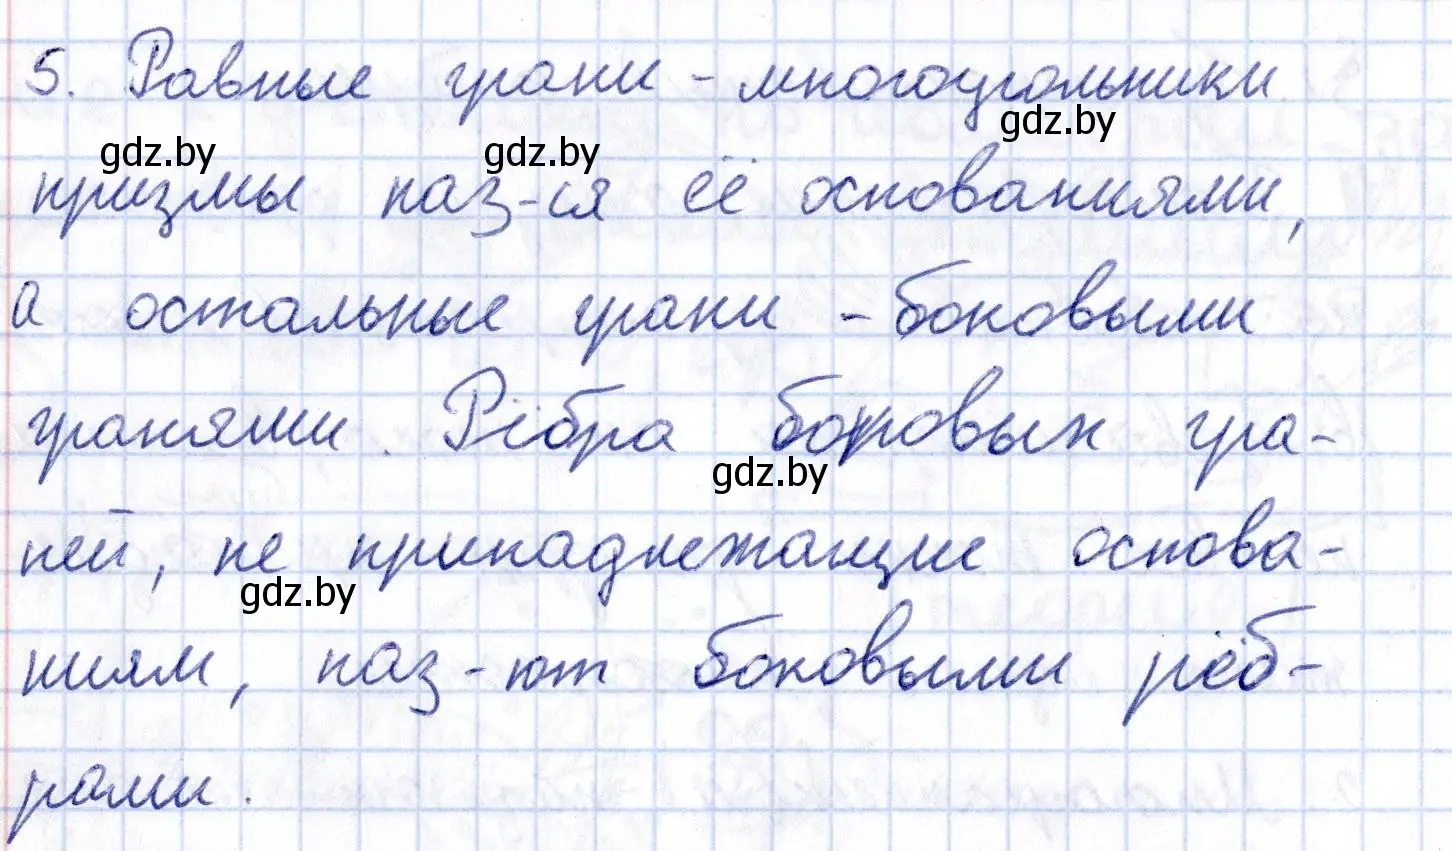 5. Равные грани - многоугольники
gdz.by
gdz.by
gdz.by
призмы наз-ся её основаниями,
а остальные грани - боковыми
гранями. Рёбра боковых гра-
gdz.by
ней, не принадлежащие основа-
gdz.by
ниям, наз-ют боковыми рёб-
рами.